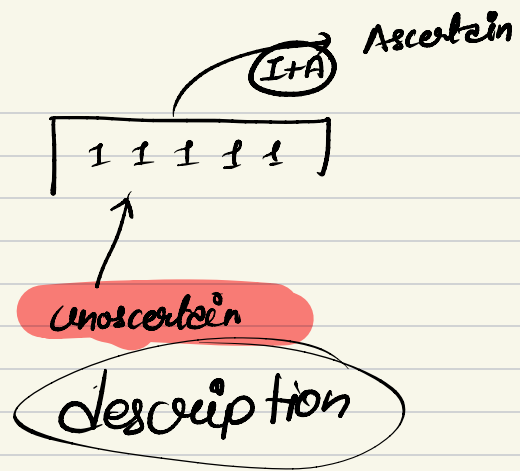 Ascertain
I+A
1 1 1 1 1
unascertain
description